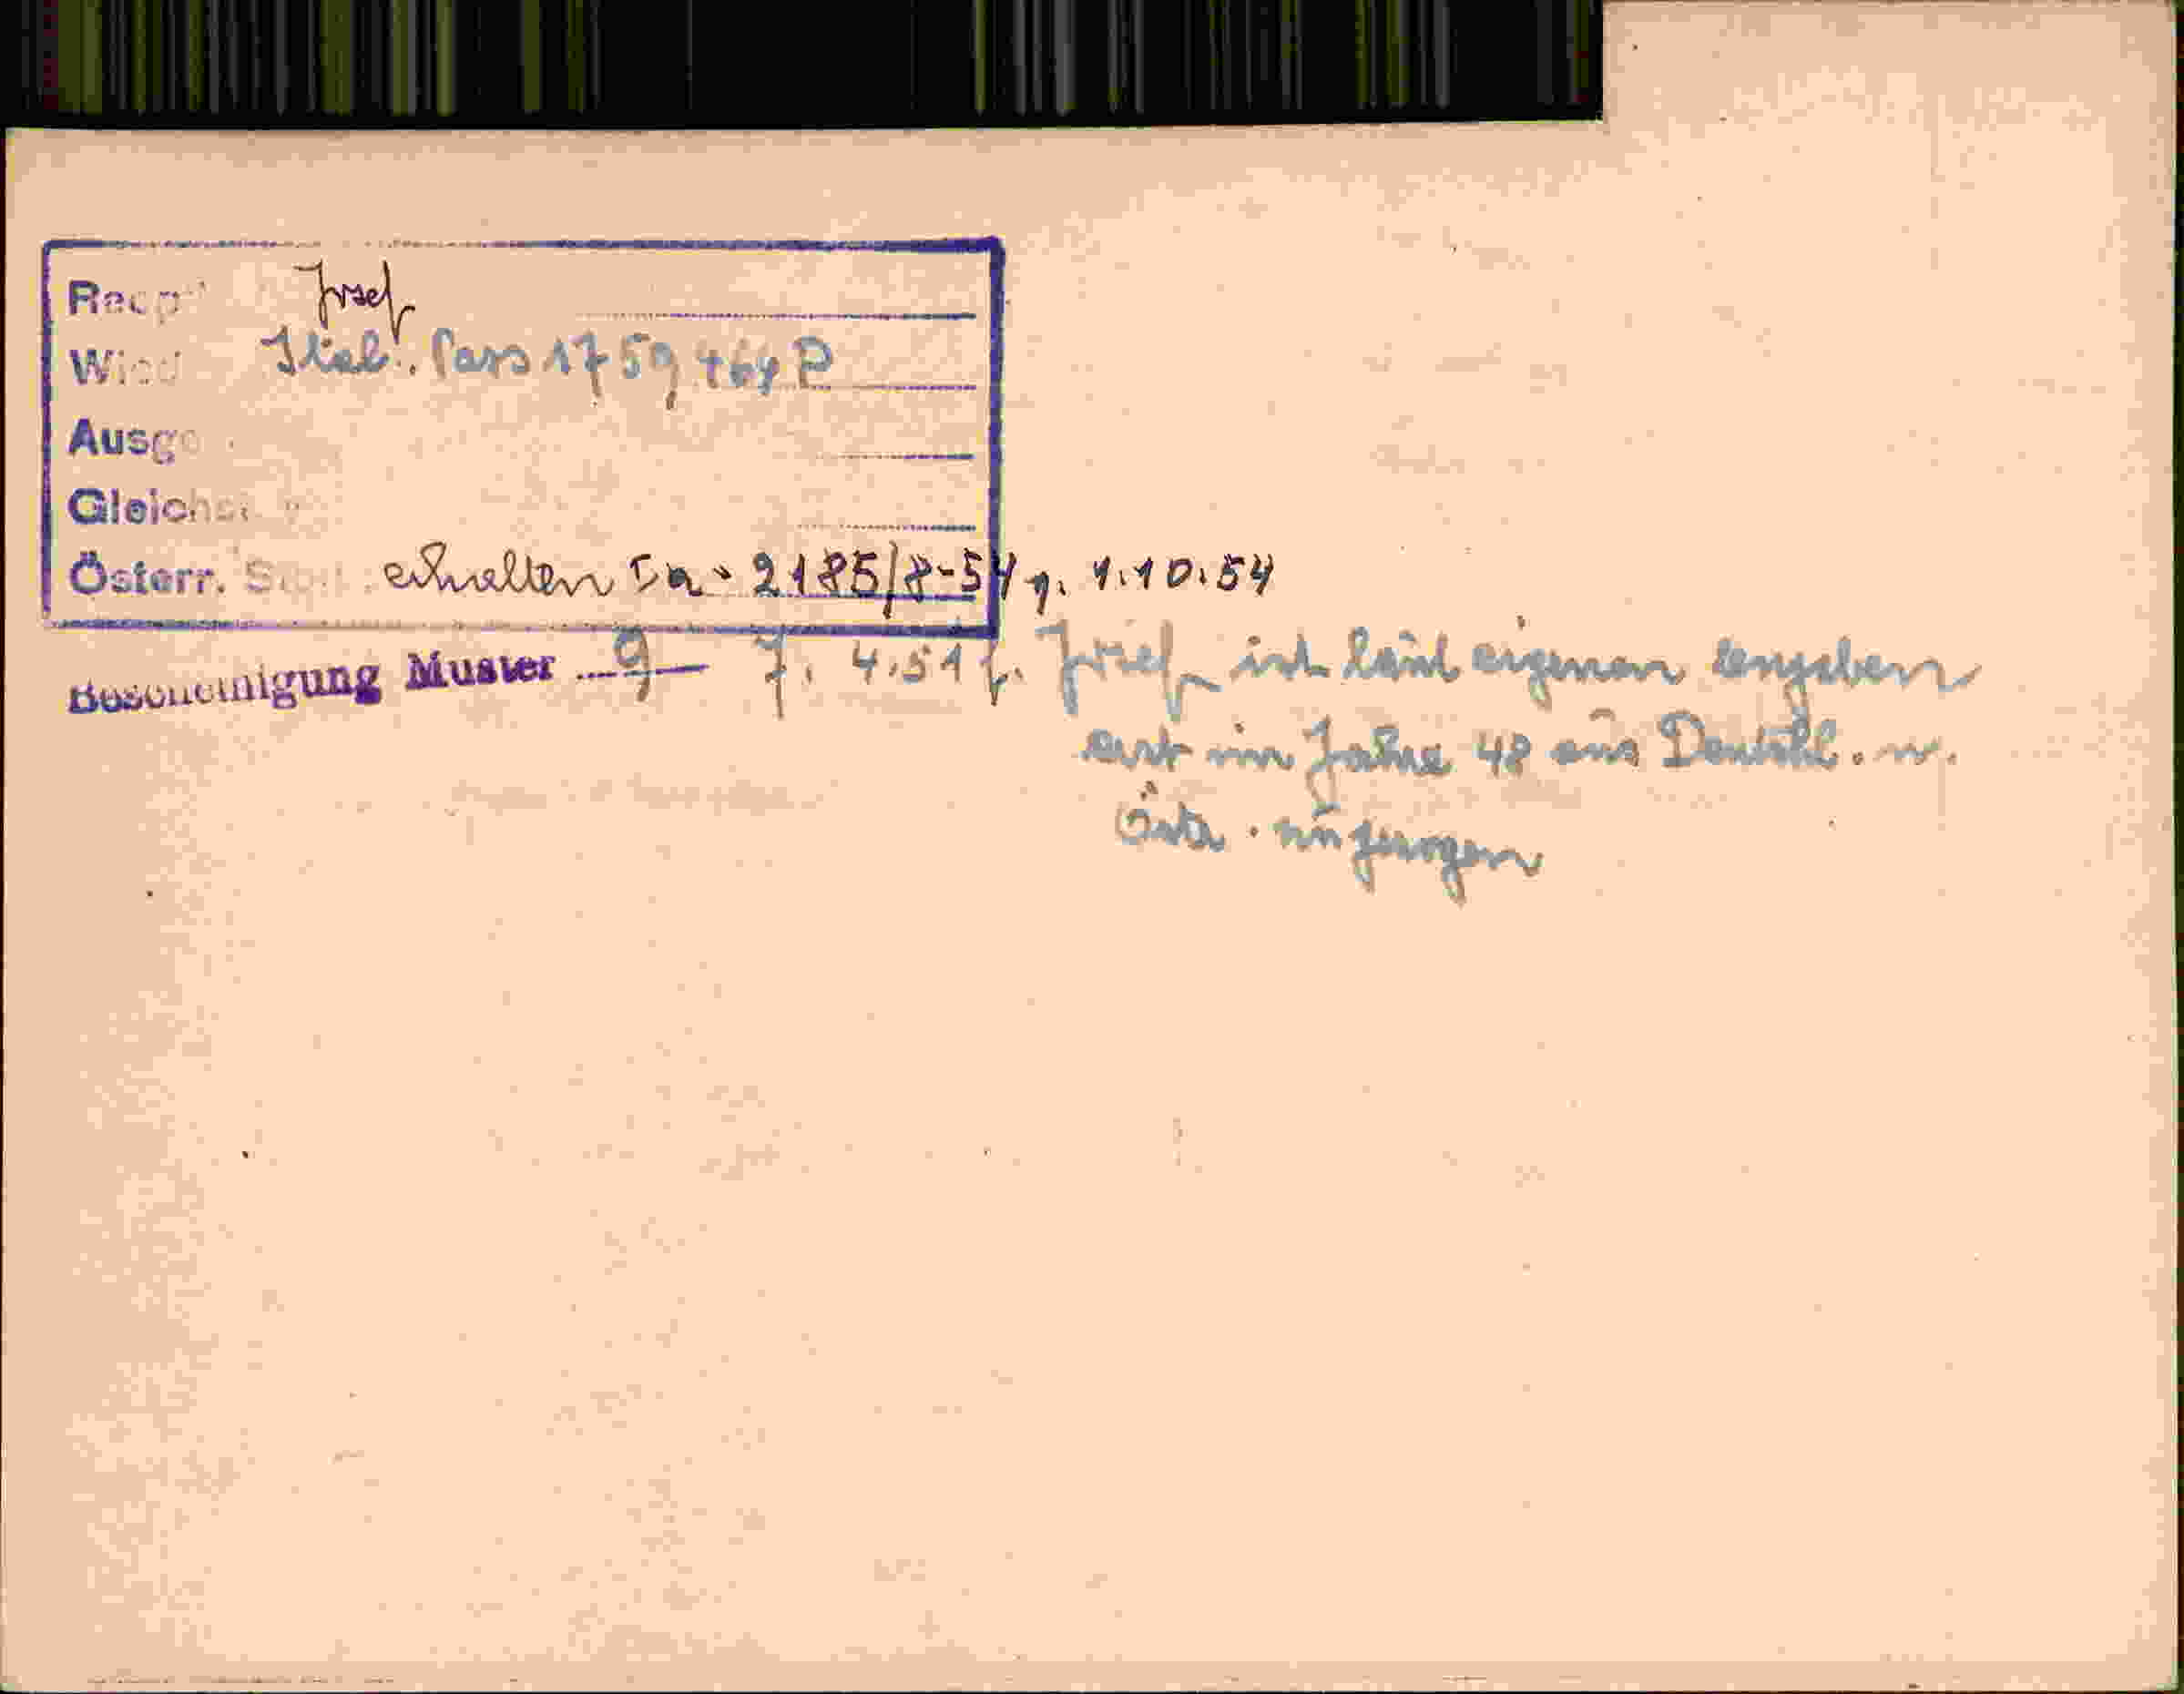 Josef
Ital. Pass 1759 P
Ausge
Gleichst
Österr. erhalten 2185/8-54 1.10.54
Bescheinigung Muster 9 7. 4.51 f. Josef ist laut eigenen Angaben
erst im Jahre 48 aus Deutschl. n.
Östr. zugezogen